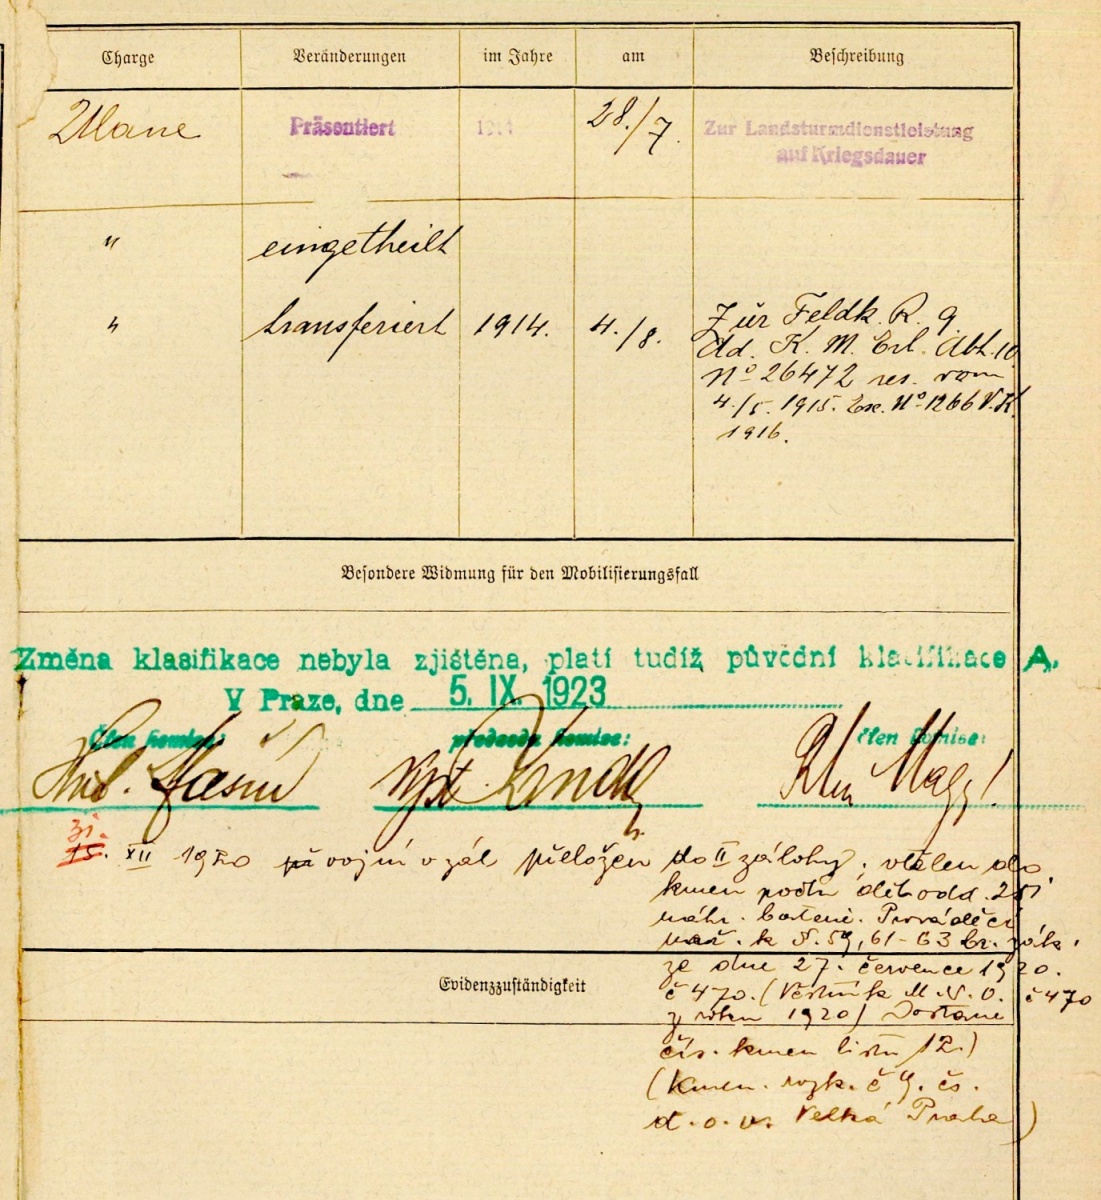 Charge Veränderungen im Jahre am Beschreibung
Ulane Präsentiert 1914 28./7. Zur Landsturmdienstleistung
auf Kriegsdauer
" eingetheilt
" transferiert 1914. 4./8. Zur Feldk. R. 9
Dd. K. M. Erl. Abt. 10
Nº 26472 res. vom
4./5. 1915. Exc. Nº 1266 V. K.
1916.
Besondere Widmung für den Mobilisierungsfall
Změna klasifikace nebyla zjištěna, platí tudíž původní klasifikace A.
V Praze, dne 5. IX. 1923
Člen komise: předseda komise: člen komise:
31.
15. XII 1920 vojín v zál přeložen do II zálohy. vtělen do
kmen počtu děl. odd. 251
náhr. baterie. Prováděcí
nař. k §. 59, 61-63 br. zák.
ze dne 27. července 1920.
č 470. (Věstník M. N. O. č 470
z roku 1920) Dostane
čís. kmen listu 12.)
(Kmen. rozk. č 9. čs.
d. o. v. Velká Praha)
Evidenzzuständigkeit